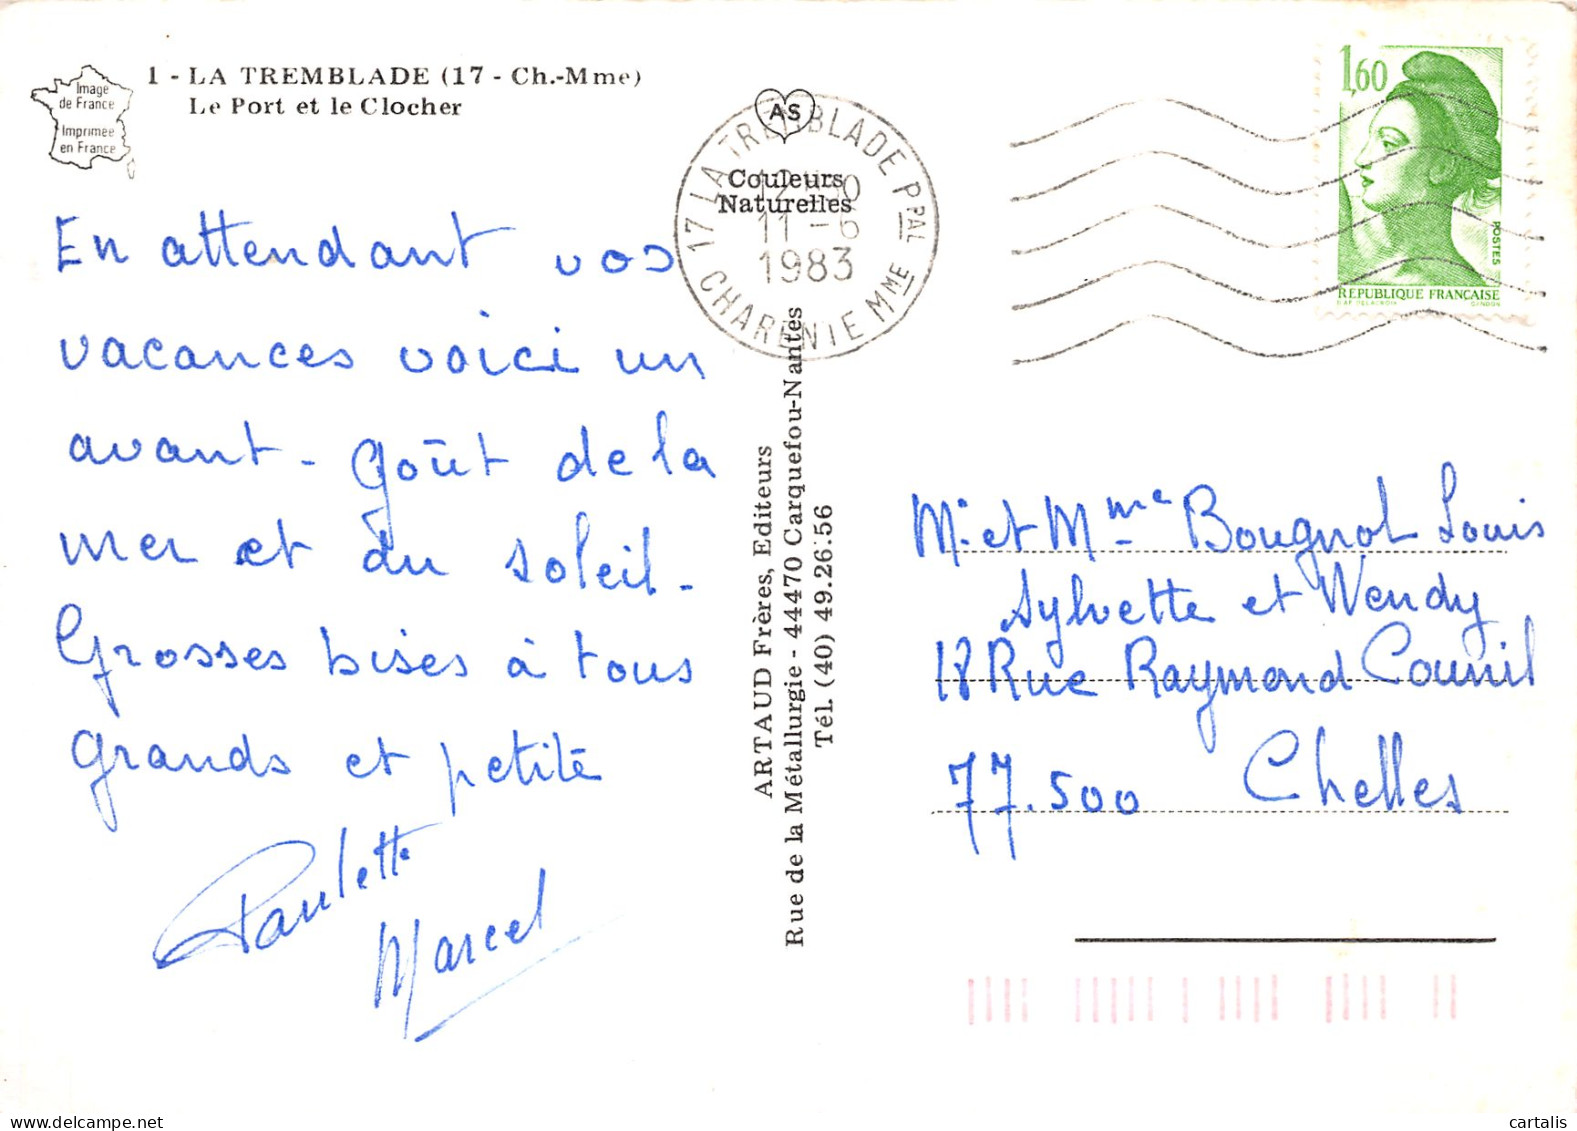 Image
de France
Imprimée
en France
1 - LA TREMBLADE (17 - Ch.-Mme)
Le Port et le Clocher
En attendant vos
vacances voici un
avant - goût de la
mer et du soleil -
Grosses bises à tous
grands et petits
Paulette
Marcel
AS
Couleurs
Naturelles
17 LA TREMBLADE PPAL
11 - 6
1983
CHARENTE MME
ARTAUD Frères, Editeurs
Rue de la Métallurgie - 44470 Carquefou-Nantes
Tél. (40) 49.26.56
1,60
POSTES
REPUBLIQUE FRANÇAISE
D'AP. DELACROIX GANDON
Mr et Mme Bougnol Louis
Sylvette et Wendy
18 Rue Raymond Counil
77.500 Chelles
cartalis